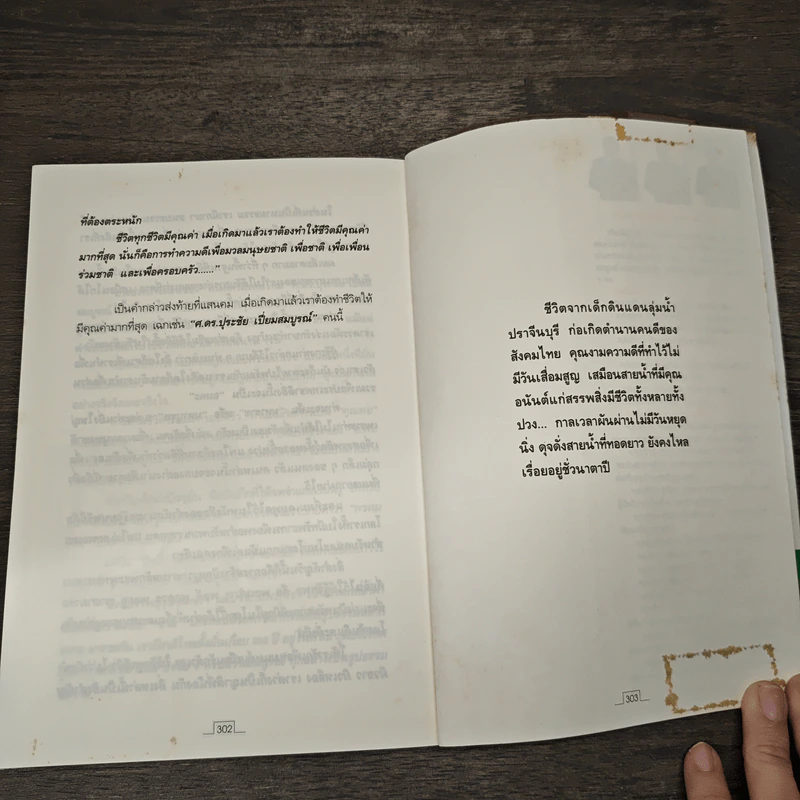 ที่ต้องตระหนัก
ชีวิตทุกชีวิตมีคุณค่า เมื่อเกิดมาแล้วเราต้องทำให้ชีวิตมีคุณค่า
มากที่สุด นั่นก็คือการทำความดีเพื่อมวลมนุษยชาติ เพื่อชาติ เพื่อเพื่อน
ร่วมชาติ และเพื่อครอบครัว......”
เป็นคำกล่าวส่งท้ายที่แสนคม เมื่อเกิดมาแล้วเราต้องทำชีวิตให้
มีคุณค่ามากที่สุด เฉกเช่น “ศ.ดร.ปุระชัย เปี่ยมสมบูรณ์” คนนี้
302
ชีวิตจากเด็กดินแดนลุ่มน้ำ
ปราจีนบุรี ก่อเกิดตำนานคนดีของ
สังคมไทย คุณงามความดีที่ทำไว้ไม่
มีวันเสื่อมสูญ เสมือนสายน้ำที่มีคุณ
อนันต์แก่สรรพสิ่งมีชีวิตทั้งหลายทั้ง
ปวง... กาลเวลาผันผ่านไม่มีวันหยุด
นิ่ง ดุจดั่งสายน้ำที่ทอดยาว ยังคงไหล
เรื่อยอยู่ชั่วนาตาปี
303